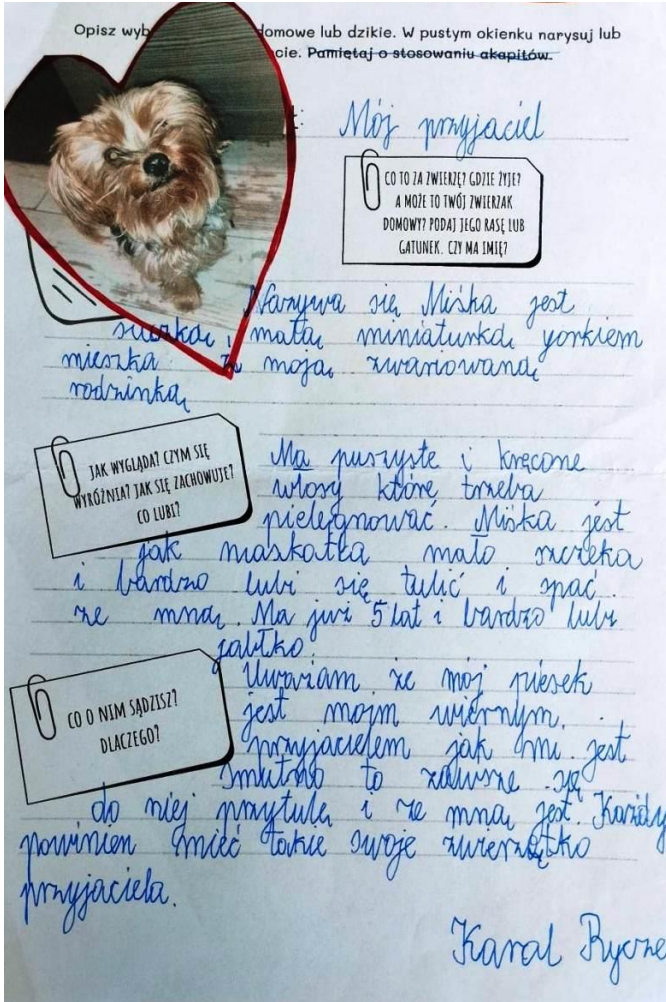 Opisz wyb domowe lub dzikie. W pustym okienku narysuj lub
cie. Pamiętaj o stosowaniu akapitów.
Mój przyjaciel
CO TO ZA ZWIERZĘ? GDZIE ŻYJE?
A MOŻE TO TWÓJ ZWIERZAK
DOMOWY? PODAJ JEGO RASĘ LUB
GATUNEK. CZY MA IMIĘ?
Nazywa się Miśka jest
suczką i małą miniaturką yorkiem
mieszka z moją zwariowaną
rodzinką
JAK WYGLĄDA? CZYM SIĘ
WYRÓŻNIA? JAK SIĘ ZACHOWUJE?
CO LUBI?
Ma puszyste i kręcone
włosy które trzeba
pielęgnować. Miśka jest
jak maskotka mało szczeka
i bardzo lubi się tulić i spać
ze mną. Ma już 5 lat i bardzo lubi
jabłko.
CO O NIM SĄDZISZ?
DLACZEGO?
Uważam że mój piesek
jest moim wiernym
przyjacielem jak mi jest
smutno to zawsze się
do niej przytulę i ze mną jest. Każdy
powinien mieć takie swoje zwierzątko
przyjaciela.
Karol Rycze